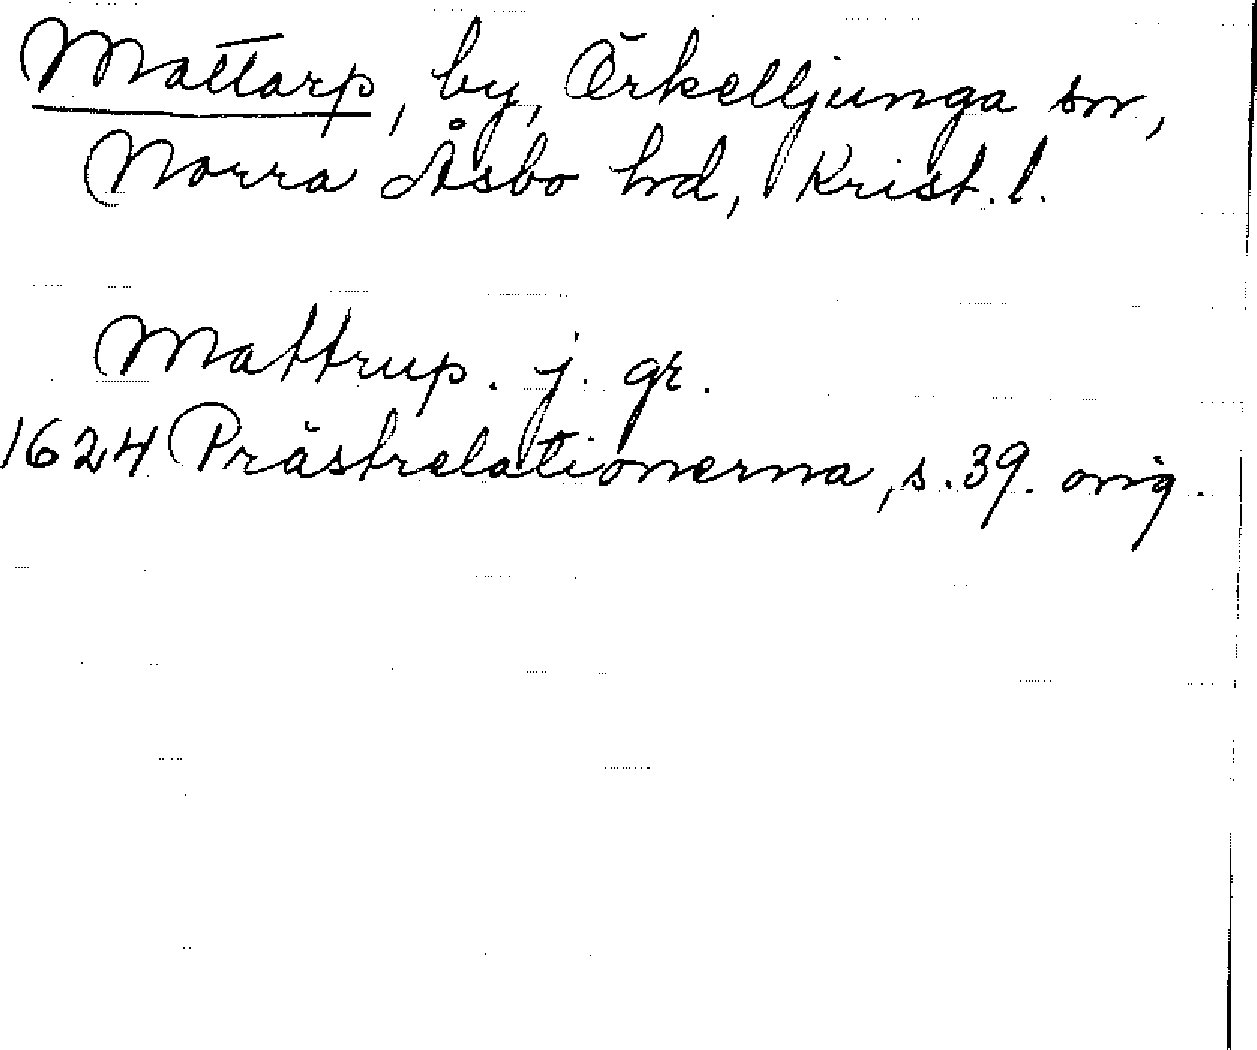 Mattarp, by, Örkelljunga sn,
Norra Åsbo hd, Krist. l.
Mattrup. j. gr.
1624 Prästrelationerna, s. 39. orig.